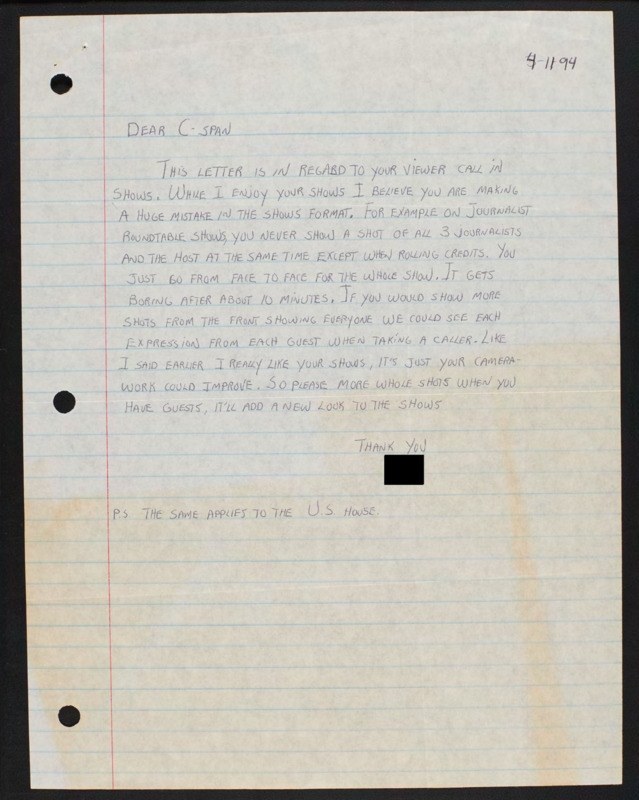 4-11-94
DEAR C-SPAN
THIS LETTER IS IN REGARD TO YOUR VIEWER CALL IN
SHOWS. WHILE I ENJOY YOUR SHOWS I BELIEVE YOU ARE MAKING
A HUGE MISTAKE IN THE SHOWS FORMAT. FOR EXAMPLE ON JOURNALIST
ROUNDTABLE SHOWS, YOU NEVER SHOW A SHOT OF ALL 3 JOURNALISTS
AND THE HOST AT THE SAME TIME EXCEPT WHEN ROLLING CREDITS. YOU
JUST GO FROM FACE TO FACE FOR THE WHOLE SHOW. IT GETS
BORING AFTER ABOUT 10 MINUTES. IF YOU WOULD SHOW MORE
SHOTS FROM THE FRONT SHOWING EVERYONE WE COULD SEE EACH
EXPRESSION FROM EACH GUEST WHEN TAKING A CALLER. LIKE
I SAID EARLIER I REALLY LIKE YOUR SHOWS, IT'S JUST YOUR CAMERA-
WORK COULD IMPROVE. SO PLEASE MORE WHOLE SHOTS WHEN YOU
HAVE GUESTS, IT'LL ADD A NEW LOOK TO THE SHOWS
THANK YOU
P.S THE SAME APPLIES TO THE U.S. HOUSE.